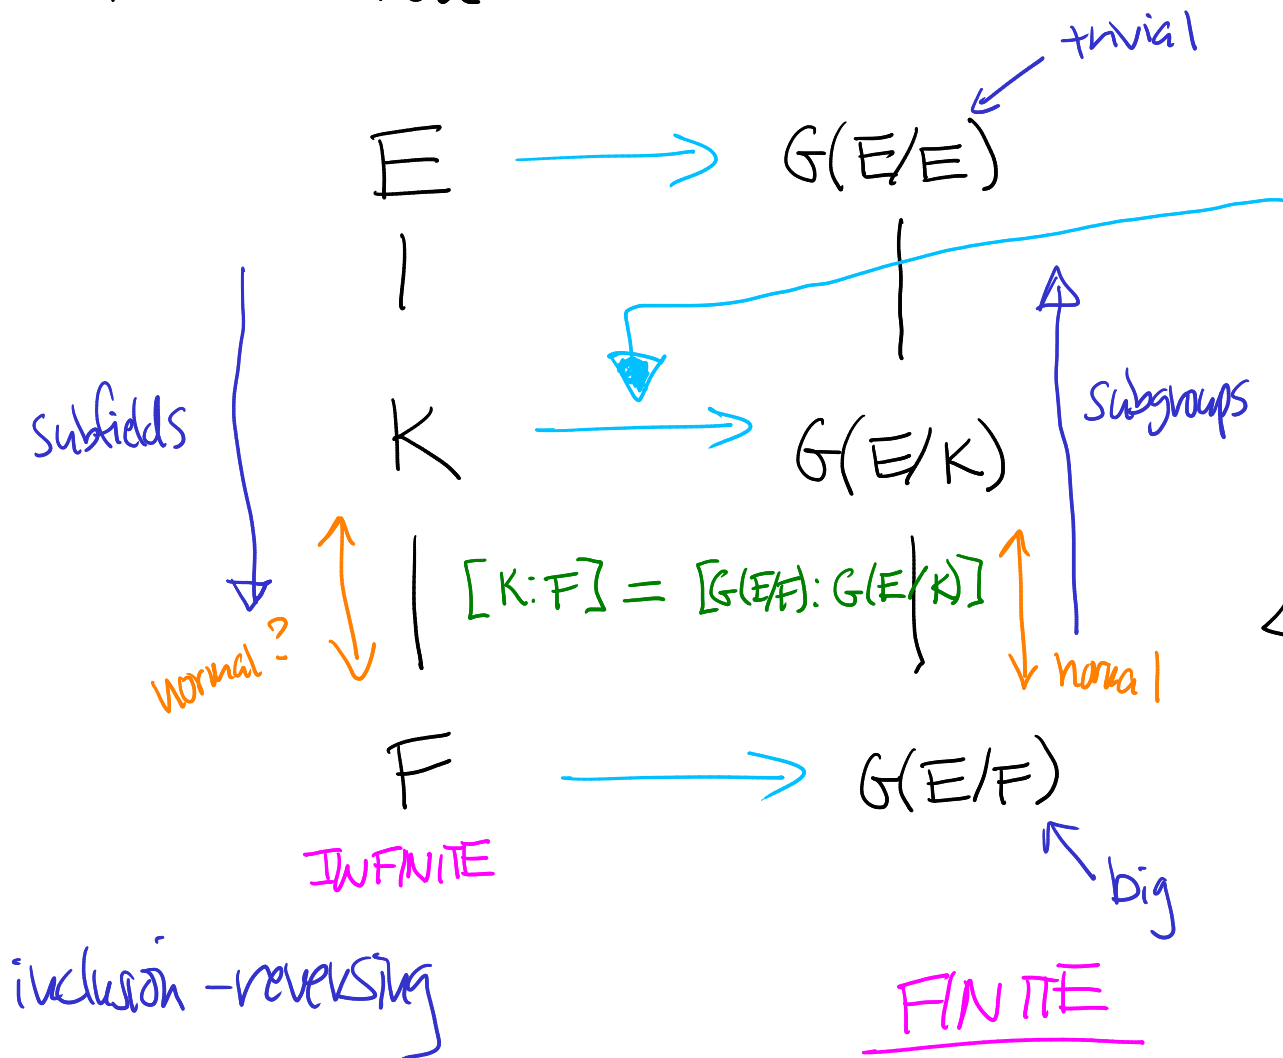 trivial
E → G(E/E)
subfields
K → G(E/K)
subgroups
[K:F] = [G(E/F):G(E/K)]
normal?
normal
F → G(E/F)
INFINITE
big
inclusion-reversing
FINITE